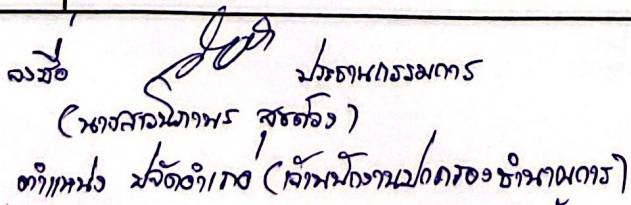 ลงชื่อ ประธานกรรมการ
(นางสาวนิภาพร สุขด้วง)
ตำแหน่ง ปลัดอำเภอ (เจ้าพนักงานปกครองชำนาญการ)